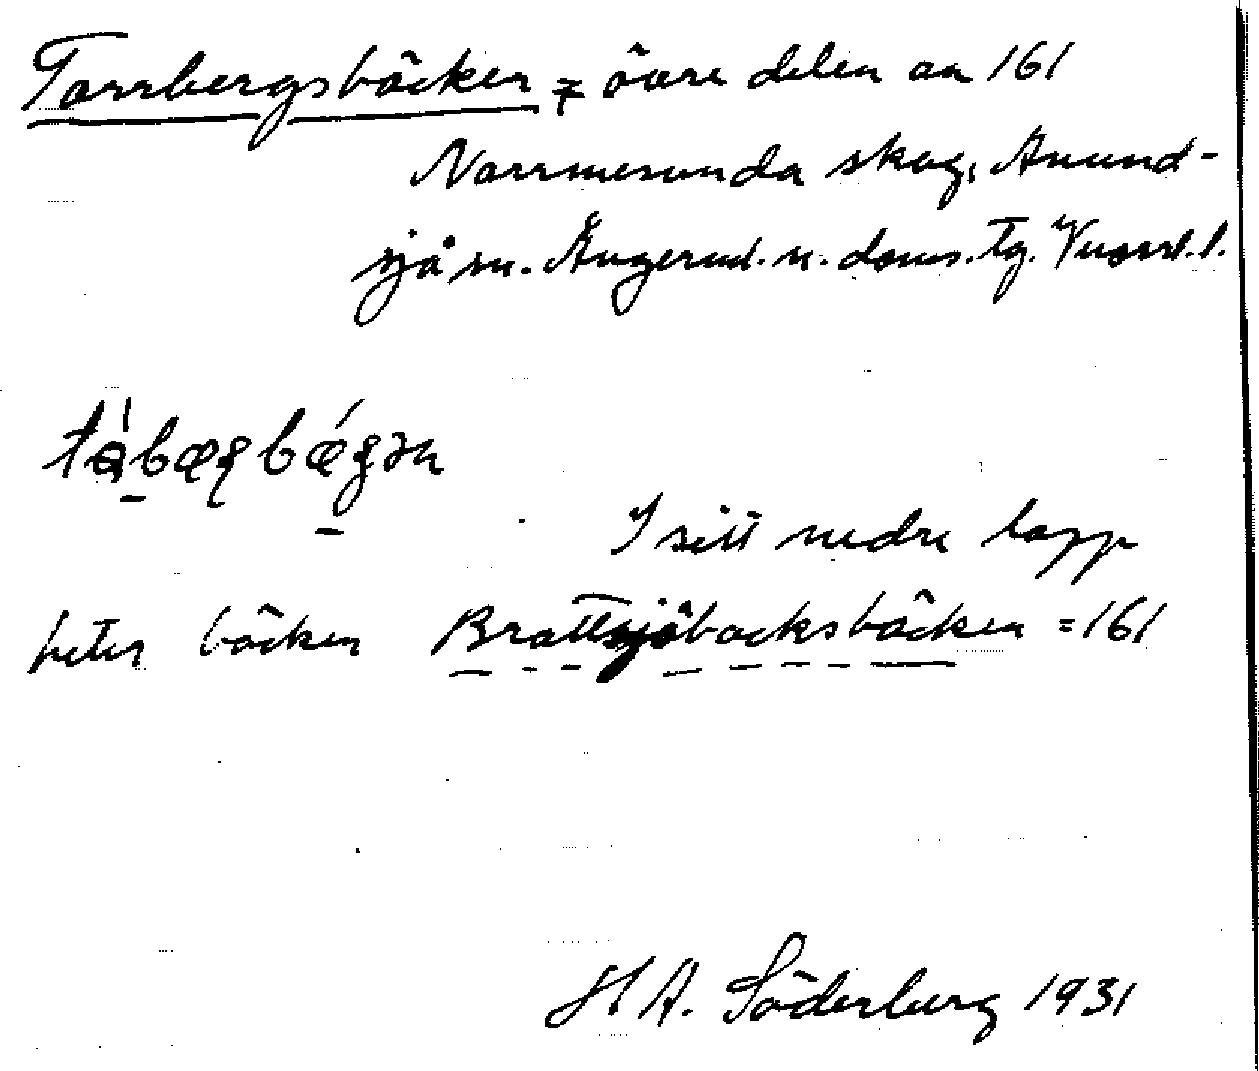 Torrbergsbäcken = övre delen av 161
Norrmesunda skog, Anund-
sjö sn. Ångerml. n. doms. tg. Vnorrl. l.
tàbæɡbǽɡən
I sitt nedre lopp
heter bäcken Brattsjöbäcksbäcken = 161
H A. Söderberg 1931